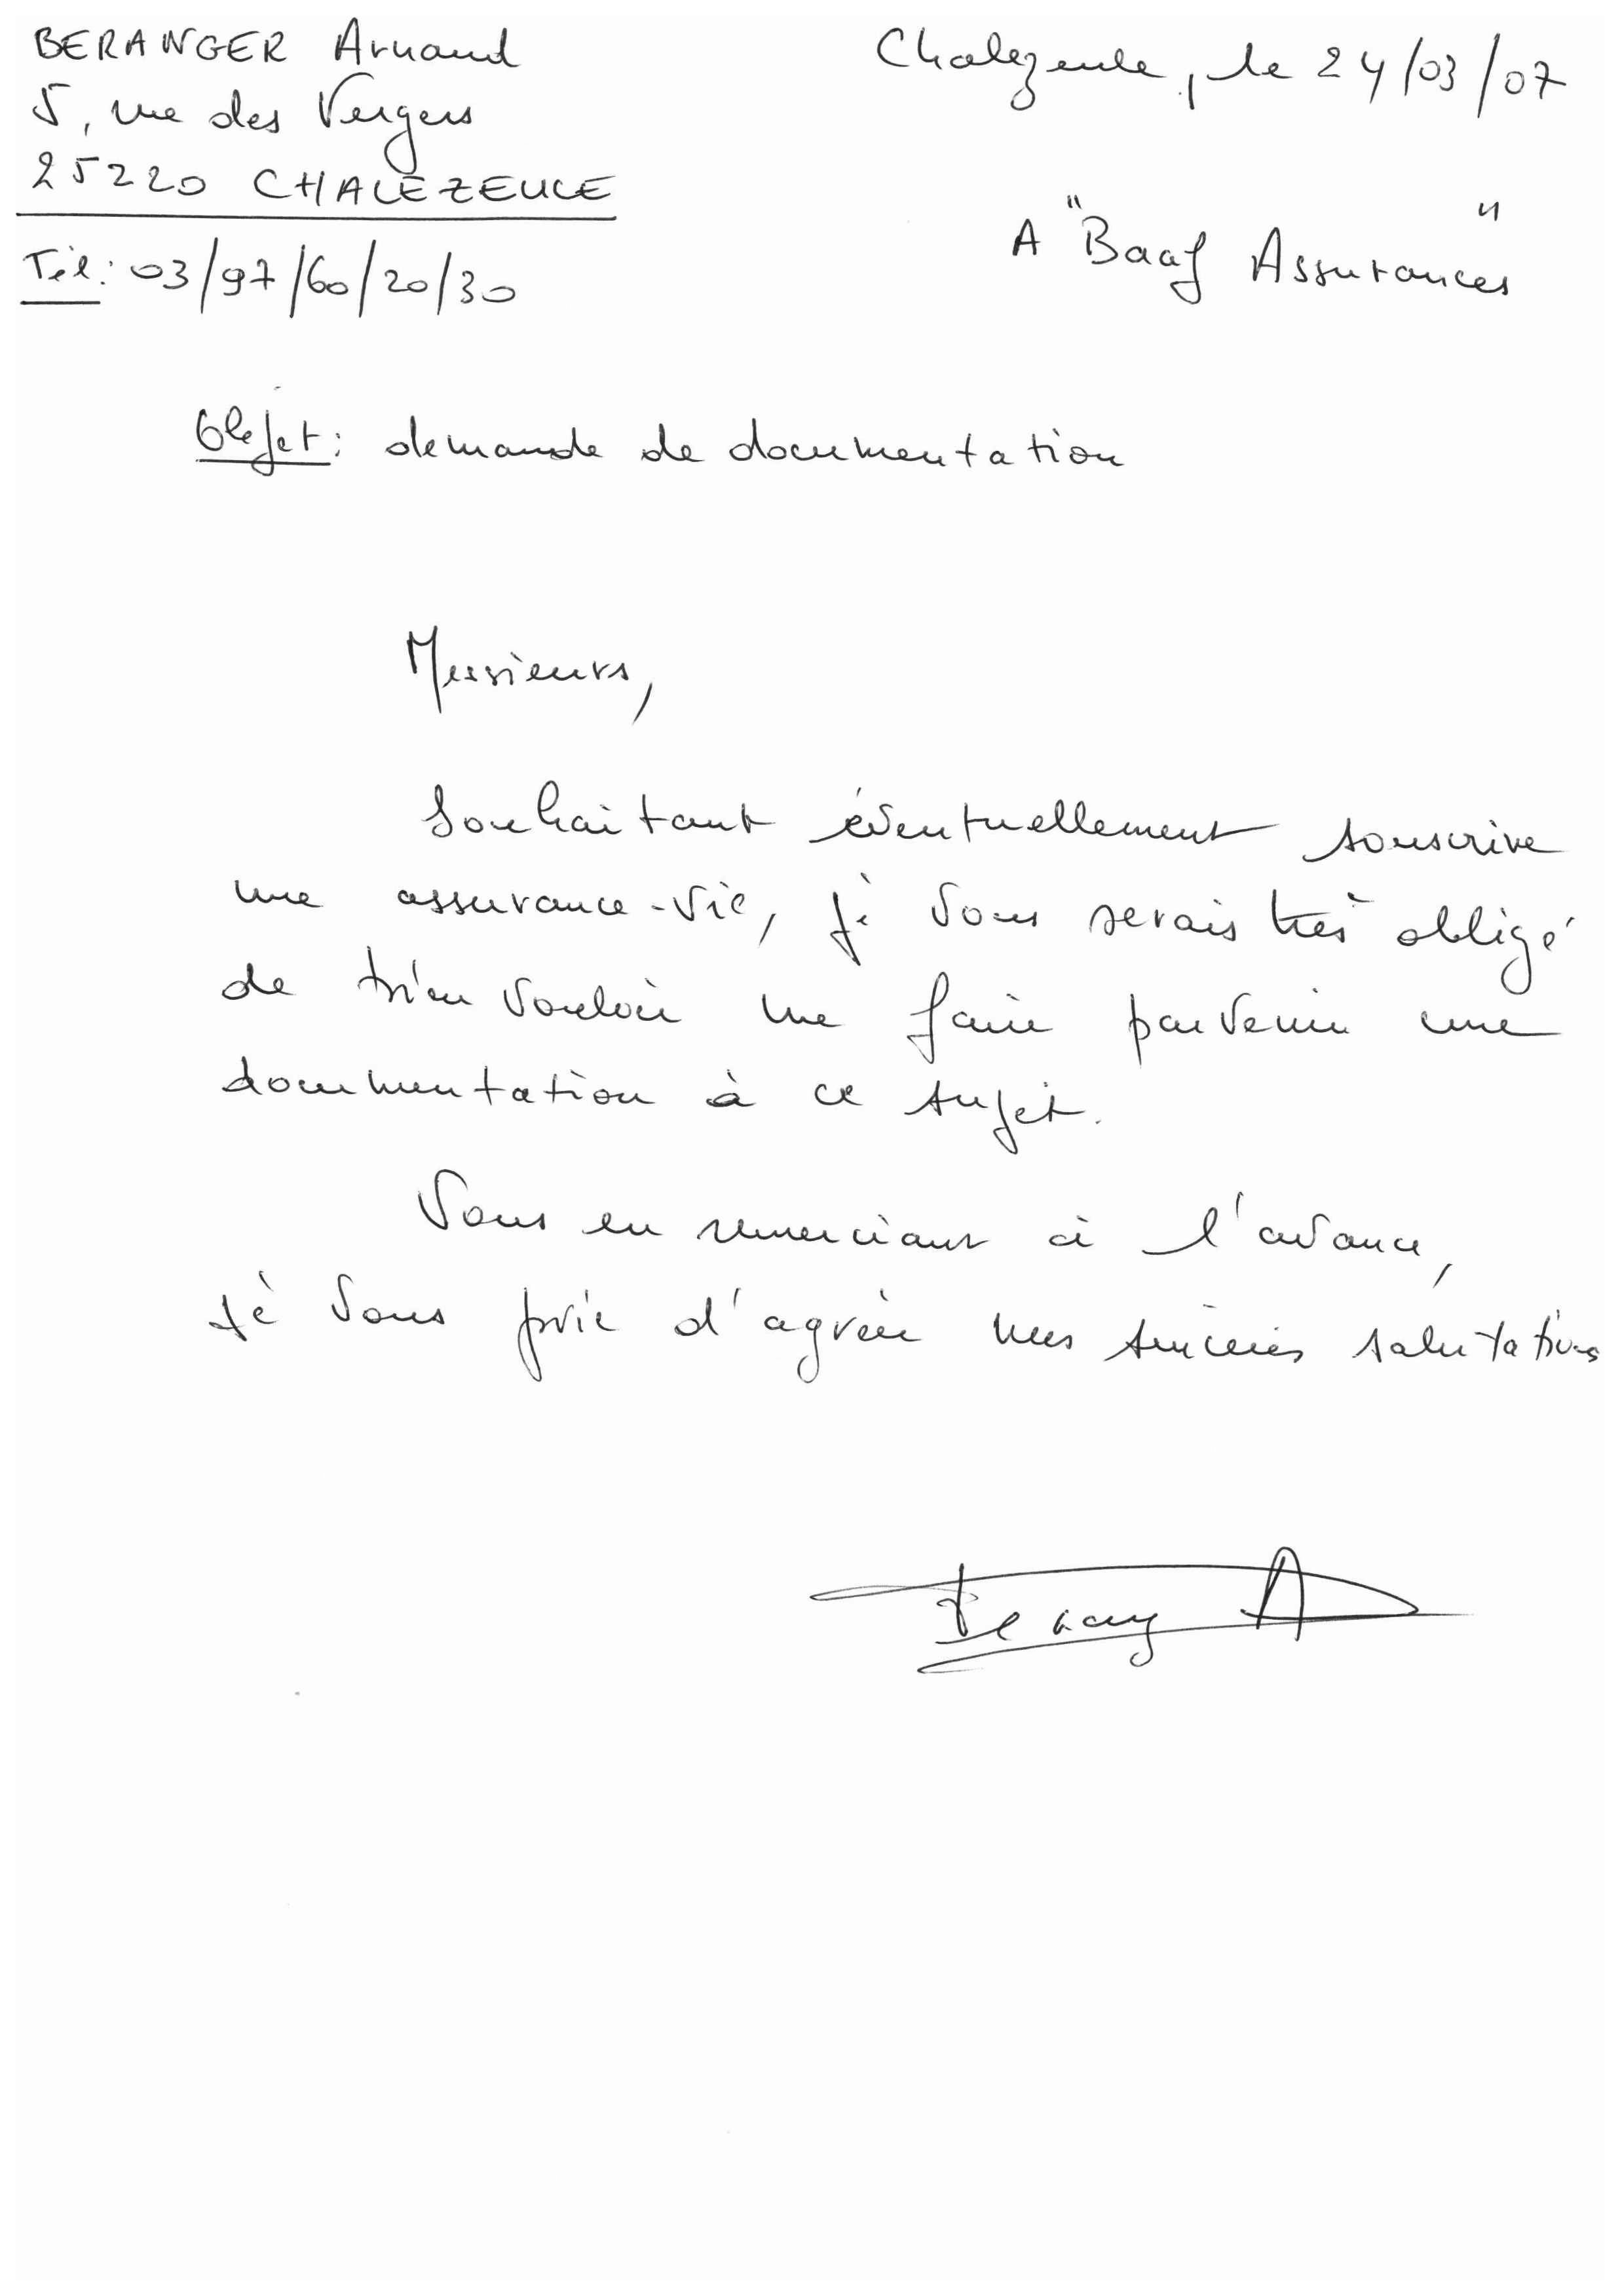 BERANGER Arnaud
5, rue des Vergers
25220 CHALEZEULE
Tél: 03/97/60/20/30
Chalezeule, le 24/03/07
A "Baaf Assurances"
Objet: demande de documentation
Messieurs,
Souhaitant éventuellement souscrire
une assurance-vie, je vous serais très obligé
de bien vouloir me faire parvenir une
documentation à ce sujet.
Vous en remerciant à l'avance,
je vous prie d'agréer mes sincères salutations